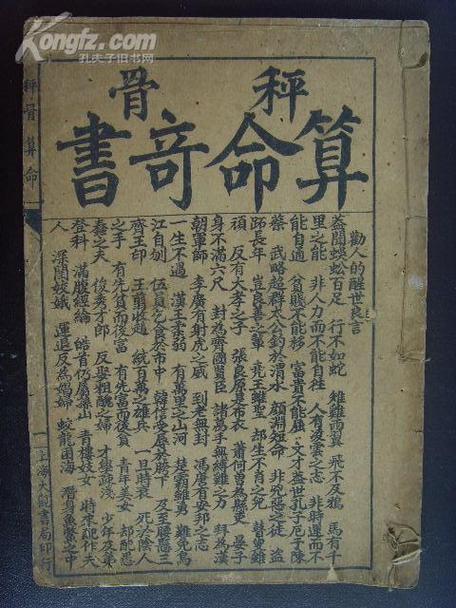 Kongfz.com
孔夫子旧书网
秤骨
算命竒書
勸人的醒世良言
蓋聞蜈蚣百足 行不如蛇 雉雞兩翼 飛不及鴉 馬有千
里之能 非人力而不能自往 人有凌雲之志 非時運而不
能自通 貧賤不能移 富貴不能屈 文才盖世孔子厄于陳
蔡 武略超羣太公釣於渭水 顏淵短命 非兇惡之徒 盜
跖長年 豈良善之輩 堯王雖聖 却生不肖之兒 瞽叟雖
頑 反有大孝之子 張良原是布衣 蕭何曾爲縣吏 晏子
身不滿六尺 封為齊國賢臣 諸葛手無縛雞之力 拜為漢
朝軍師 李廣有射虎之威 到老無封 馮唐有安邦之志
一生不遇 漢王柔弱 有萬里之山河 楚霸雖勇 難免烏
江自刎 伍員乞食於市中 韓信受辱於胯下 及至腰懸三
齊王印 王翦收趙 統百萬之雄兵 一旦時衰 死於陰人
之手 有先貧而後富 有先富而後貧 青年美女 却配愚
蠢之夫 俊秀才郎 反娶粗醜之婦 才學疎淺 少年及第
登科 滿腹經綸 皓首仍屬深山 青樓妓女 時來配作夫
人 深閨姣娥 運退反為娼婦 蛟龍困海 潛身魚鱉之中
秤骨算命
一
上海大觀書局印行